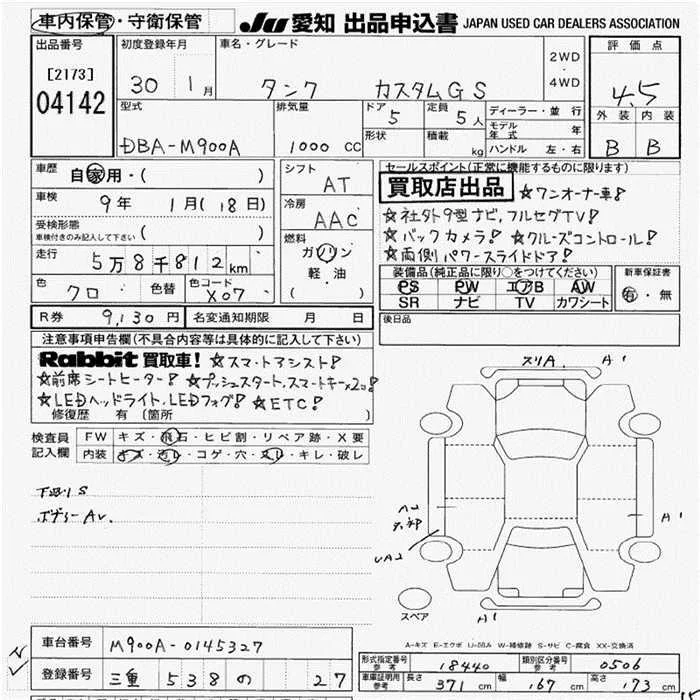 車内保管・守衛保管
JU 愛知 出品申込書 JAPAN USED CAR DEALERS ASSOCIATION
出品番号
[2173]
04142
初度登録年月
30 1月
車名・グレード
タンク カスタムGS
2WD
4WD
評価点
4.5
外装 内装
B B
型式
DBA-M900A
排気量
1000 CC
ドア 5
定員 5人
形状
積載 kg
ディーラー・並行
モデル年式 年
ハンドル 左・右
車歴
自家用・( )
車検
9年 1月(18日)
受検形態
車検付きのみ記入して下さい ( )
走行
5万8千812km
色 クロ 色替 色コード X07
シフト
AT
冷房
AAC
燃料
ガソリン
軽・油
( )
セールスポイント(正常に機能するものに限ります)
買取店出品 ☆ワンオーナー車!
☆社外9型ナビ,フルセグTV!
☆バックカメラ! ☆クルーズコントロール!
☆両側パワースライドドア!
装備品(純正品に限り○をつけてください)
PS PW エアB AW
SR ナビ TV カワシート
新車保証書
有・無
R券 9,130円 名変通知期限 月 日
後日品
注意事項申告欄(不具合内容等は具体的に記入して下さい)
Rabbit 買取車! ☆スマートアシスト!
☆前席シートヒーター! ☆プッシュスタート,スマートキー×2ヶ!
☆LEDヘッドライト,LEDフォグ! ☆ETC!
修復歴 有 (箇所 )
検査員記入欄
FW キズ・飛石・ヒビ割・リペア跡・X要
内装 キズ・汚れ・コゲ・穴・スレ・キレ・破レ
下廻りS
ボデーAU.
スリA. A1
A1
UA2
A1
スペア
A1
A-キズ E-エクボ U-凹み W-補修跡 S-サビ C-腐食 XX-交換済
車台番号 M900A-0145327
登録番号 三重 538 の 27
形式指定番号 参考 18440 類別区分番号 参考 0506
車庫証明用 参考 長さ 371 cm 幅 167 cm 高さ 173 cm